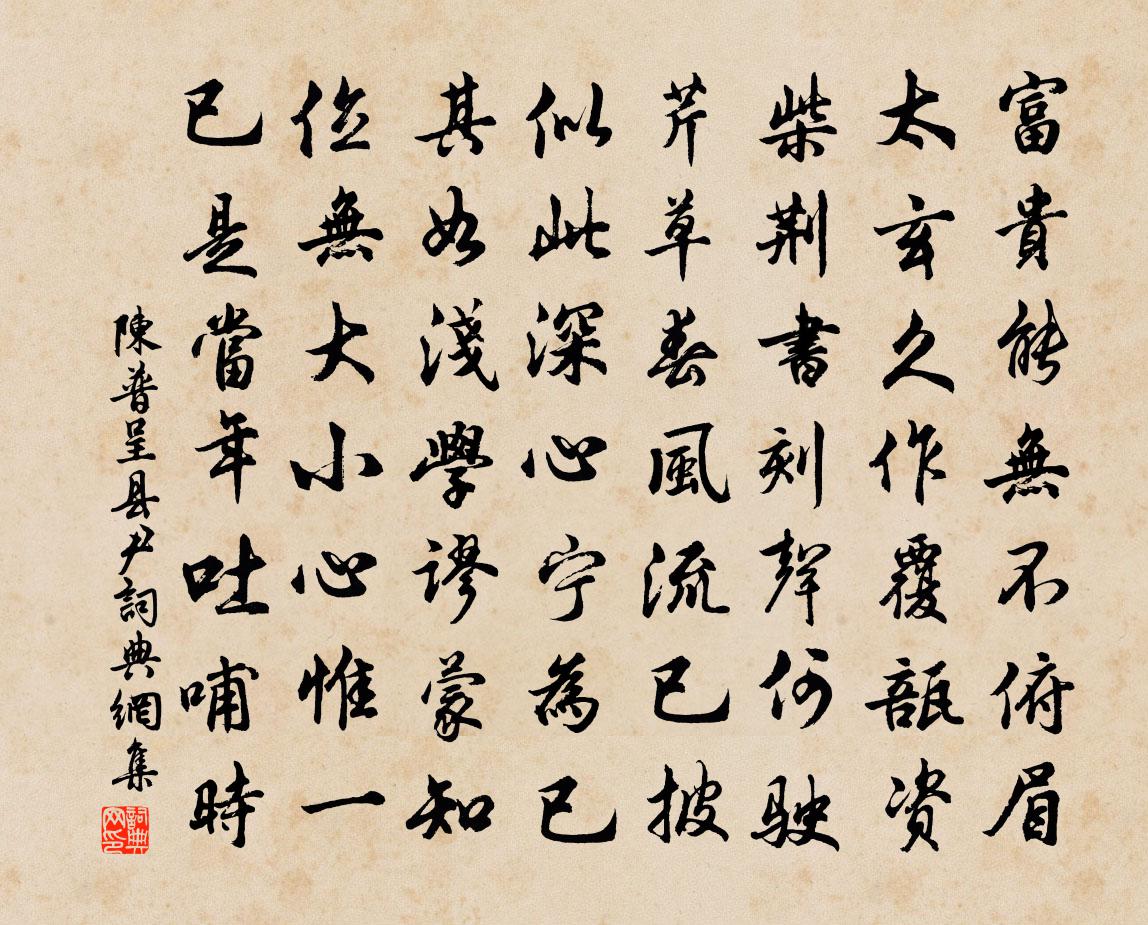 富貴能無不俯眉
太玄久作覆瓿资
柴荆書刻聲何駛
芹草春風流已披
似此深心宁為已
其如淺學謬蒙知
位無大小心惟一
已是當年吐哺時
陳普呈县尹詞典網集
詞典网印